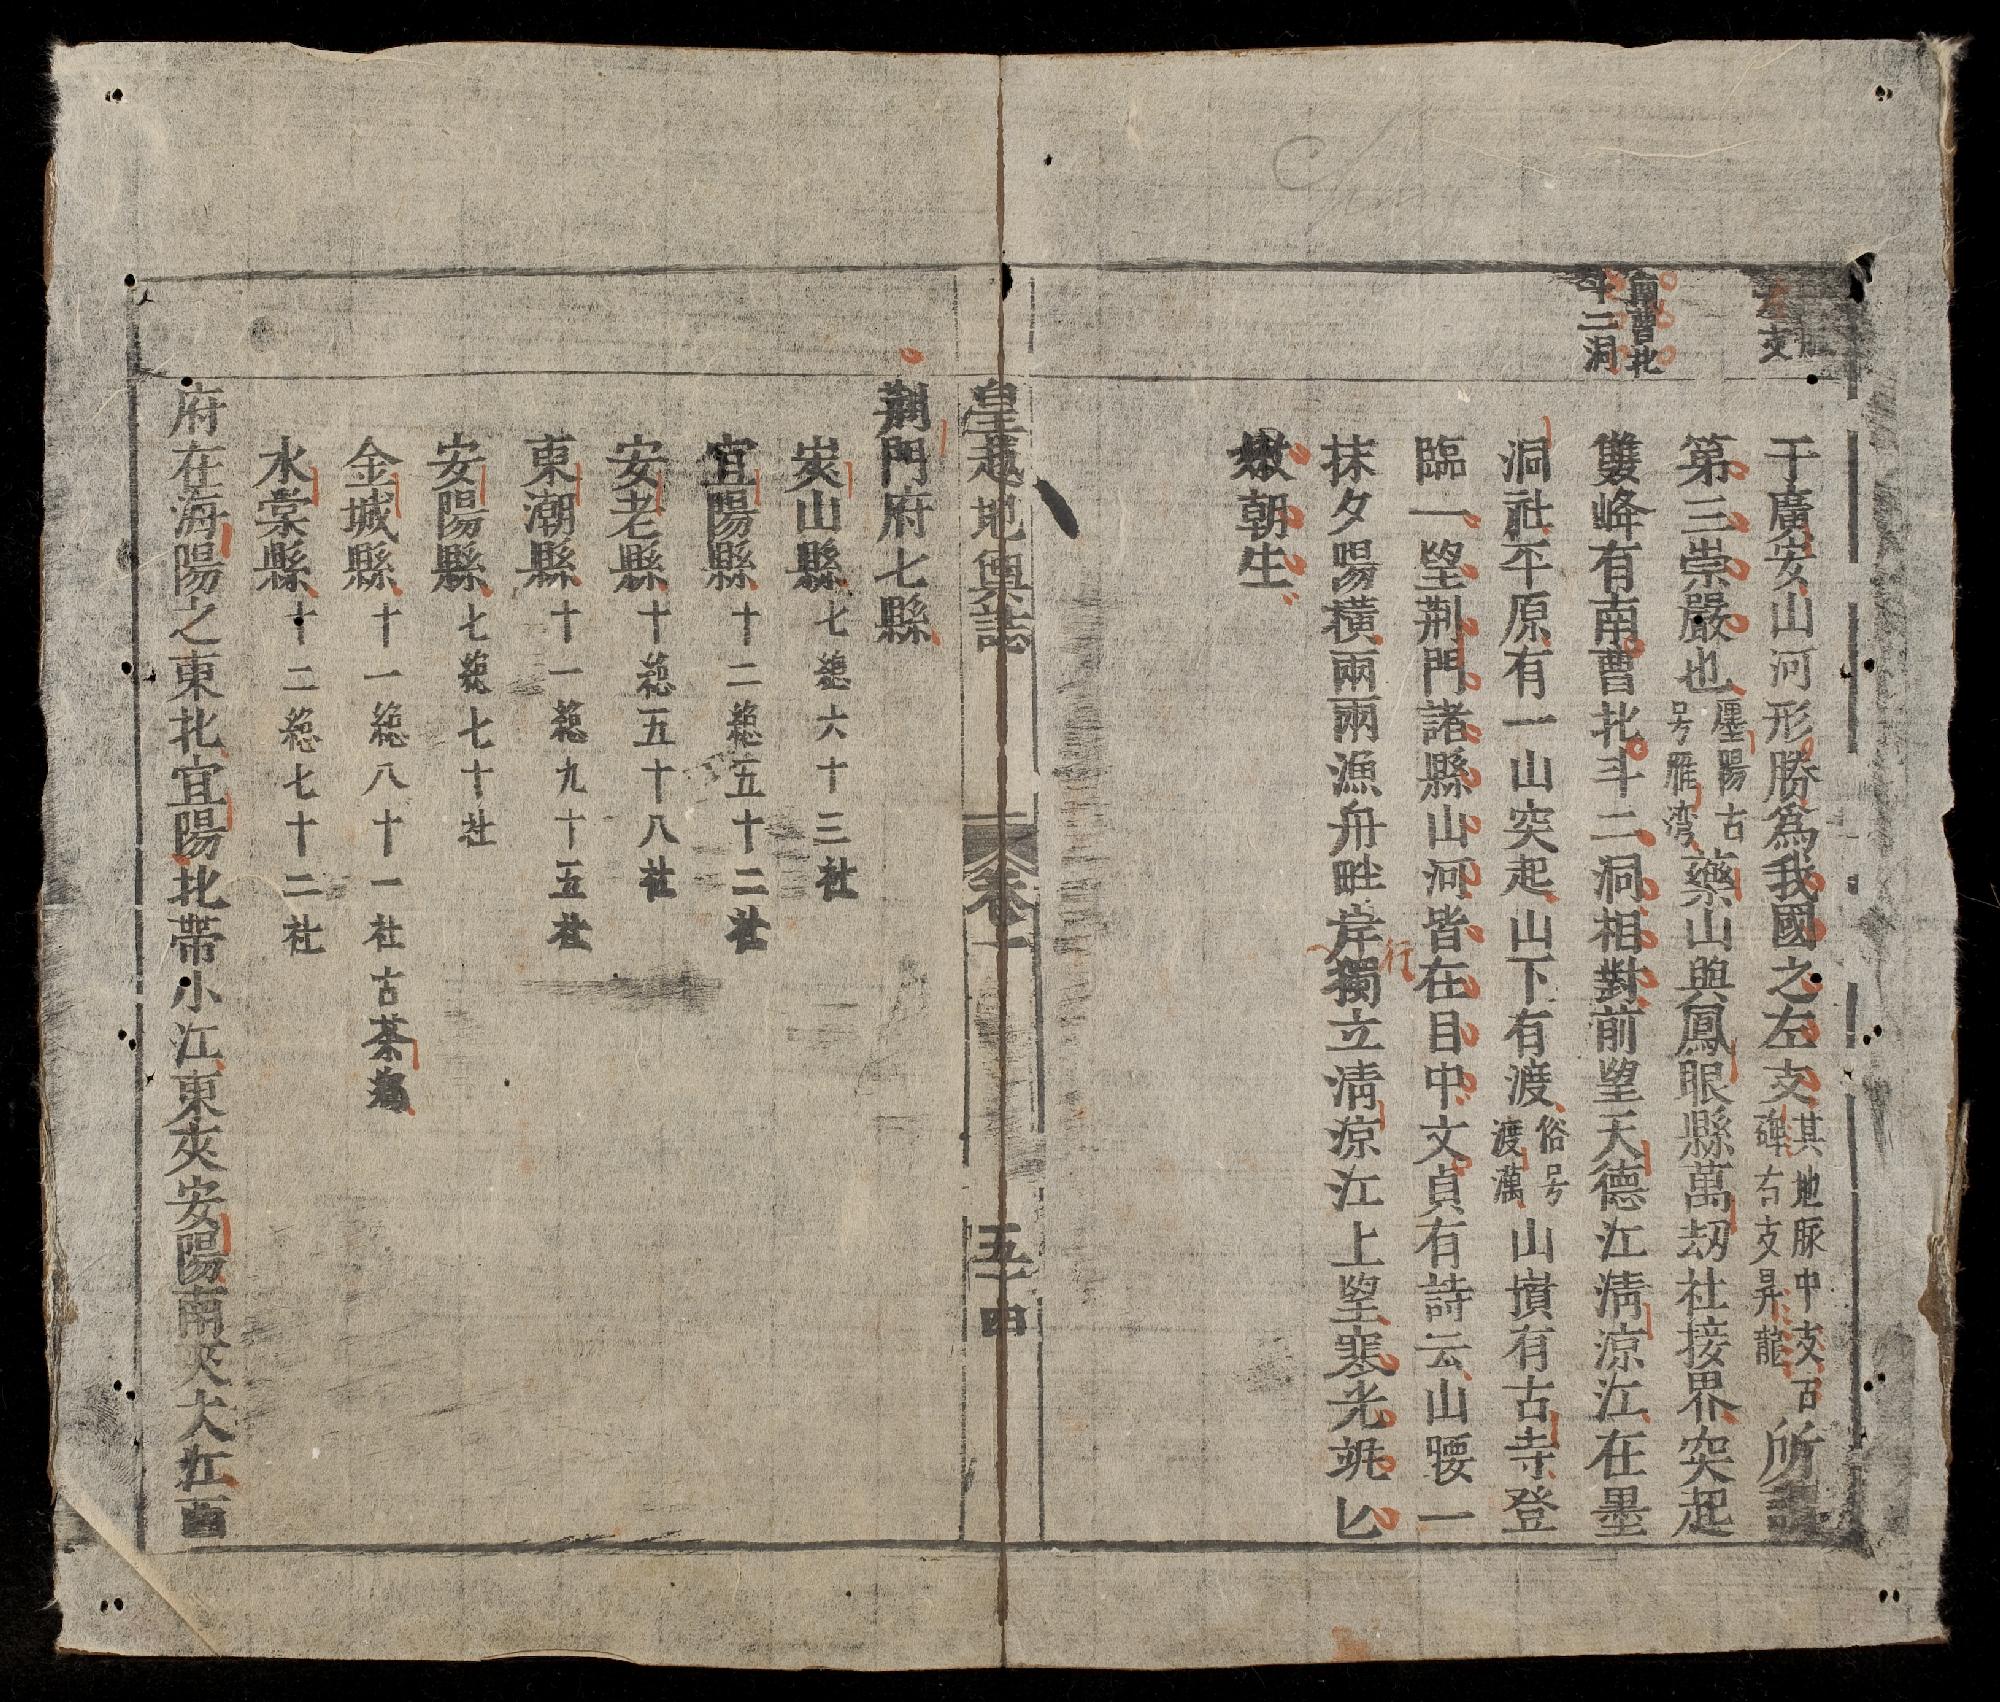 左支
南曹北
斗二洞
于廣安山河形勝為我國之左支其地脉中支古碑右支昇龍所謂
第三崇嚴也墨陽古号雁湾藥山與鳳眼縣萬刼社接界突起
雙峰有南曹北斗二洞相對前望天德江清凉江在墨
洞社平原有一山突起山下有渡俗号渡澫山嵿有古寺登
臨一望荆門諸縣山河皆在目中文貞有詩云山腰一
抹夕陽橫兩兩漁舟畔岸獨立清凉江上望寒光颭匕
行
嫩朝生
皇越地輿誌
卷一
五十四
荆門府七縣
炭山縣七總六十三社
宜陽縣十二總五十二社
安老縣十總五十八社
東潮縣十一總九十五社
安陽縣七總七十社
金城縣十一總八十一社古茶
水棠縣十二總七十二社
府在海陽之東北宜陽北帶小江東夾安陽南夾大江西